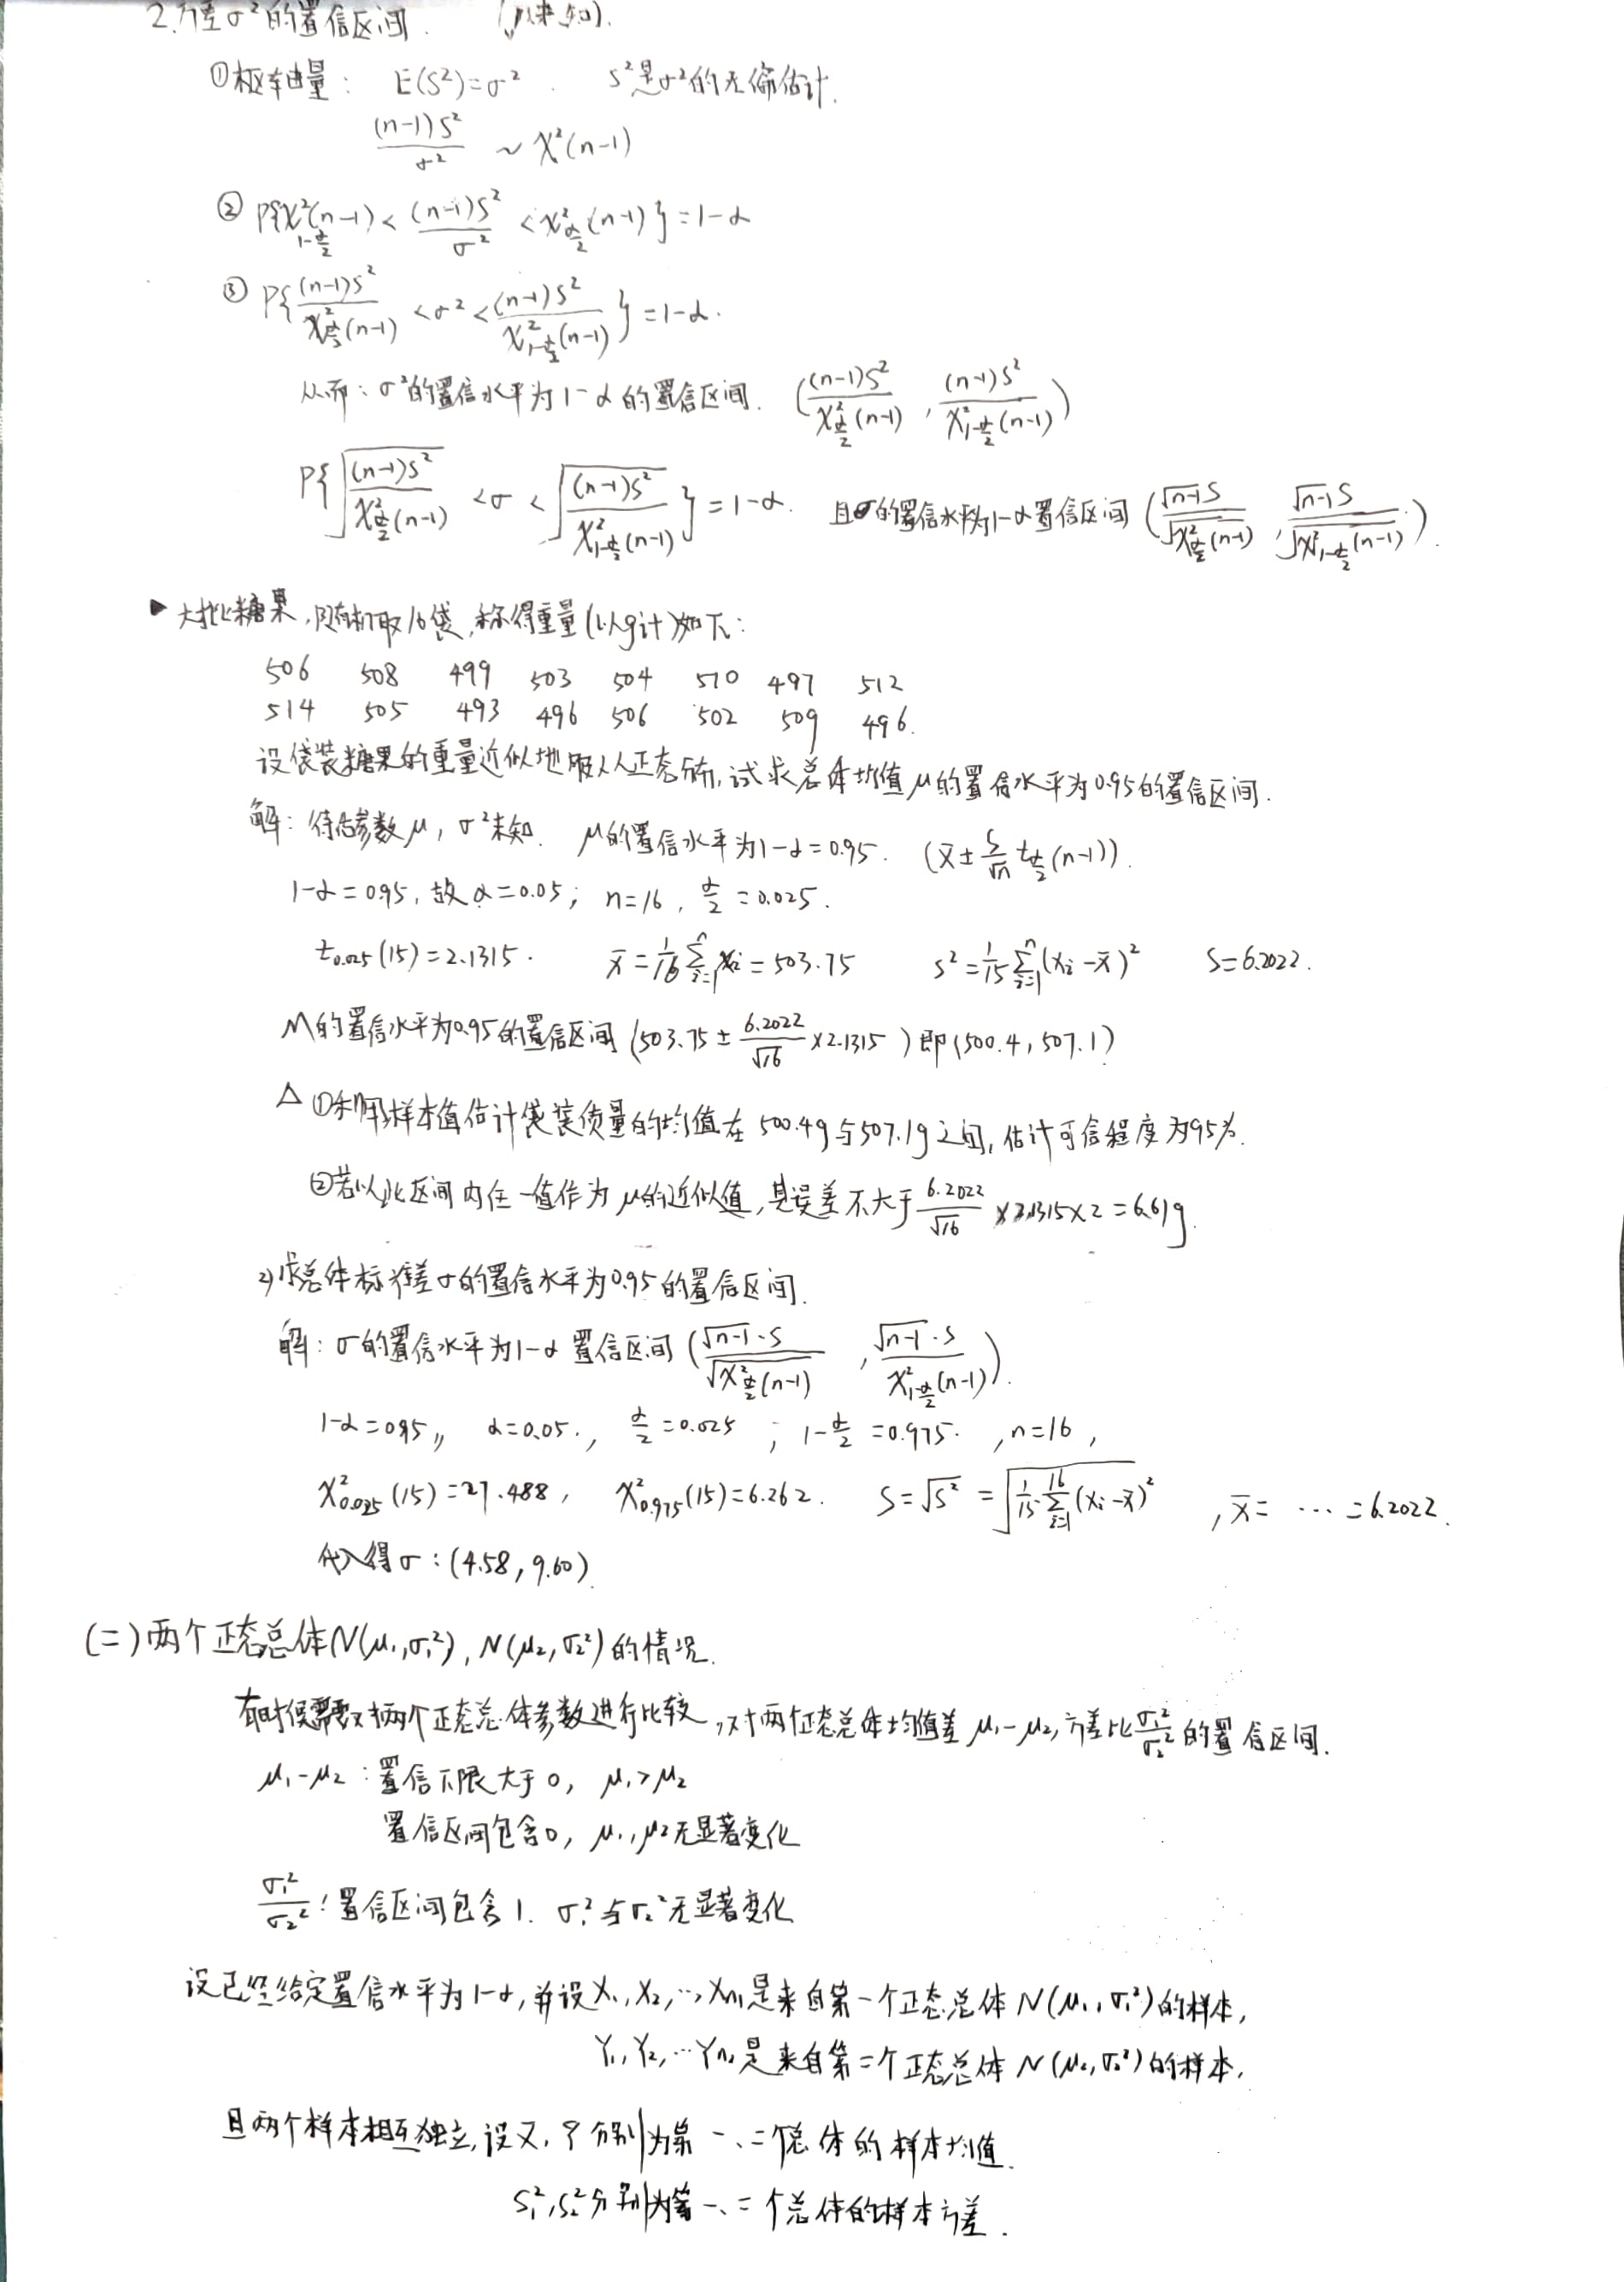 2.方差σ²的置信区间. (μ未知).
①枢轴量: E(S²)=σ². S²是σ²的无偏估计.
(n-1)S²/σ² ~ χ²(n-1)
② P{χ²_{1-α/2}(n-1) < (n-1)S²/σ² < χ²_{α/2}(n-1)} = 1-α
③ P{(n-1)S²/χ²_{α/2}(n-1) < σ² < (n-1)S²/χ²_{1-α/2}(n-1)} = 1-α.
从而: σ²的置信水平为1-α的置信区间. ((n-1)S²/χ²_{α/2}(n-1), (n-1)S²/χ²_{1-α/2}(n-1))
P{√((n-1)S²/χ²_{α/2}(n-1)) < σ < √((n-1)S²/χ²_{1-α/2}(n-1))} = 1-α. 且σ的置信水平为1-α置信区间 (√(n-1)S/√(χ²_{α/2}(n-1)), √(n-1)S/√(χ²_{1-α/2}(n-1))).
▶ 大批糖果,随机取16袋,称得重量(以g计)如下:
506 508 499 503 504 510 497 512
514 505 493 496 506 502 509 496.
设袋装糖果的重量近似地服从正态分布,试求总体均值μ的置信水平为0.95的置信区间.
解: 待估参数μ, σ²未知. μ的置信水平为1-α=0.95. (x̄ ± S/√n t_{α/2}(n-1)).
1-α=0.95, 故α=0.05; n=16, α/2=0.025.
t_{0.025}(15)=2.1315. x̄=1/16 ∑_{i=1}^{n} xi=503.75 s²=1/15 ∑_{i=1}^{n}(xi-x̄)² S=6.2022.
μ的置信水平为0.95的置信区间 (503.75 ± 6.2022/√16 ×2.1315) 即(500.4, 507.1)
△ ①利用样本值估计袋装质量的均值在500.4g与507.1g之间,估计可信程度为95%.
②若以此区间内任一值作为μ的近似值,其误差不大于 6.2022/√16 ×2.1315×2=6.61g.
2)求总体标准差σ的置信水平为0.95的置信区间.
解: σ的置信水平为1-α置信区间 (√(n-1)·S/√(χ²_{α/2}(n-1)), √(n-1)·S/χ²_{1-α/2}(n-1)).
1-α=0.95,, α=0.05., α/2=0.025 ; 1-α/2=0.975. , n=16,
χ²_{0.025}(15)=27.488, χ²_{0.975}(15)=6.262. S=√S²=√(1/15·∑_{i=1}^{16}(xi-x̄)²) , x̄= ⋯ =6.2022.
代入得σ: (4.58, 9.60).
(二)两个正态总体N(μ₁,σ₁²), N(μ₂,σ₂²)的情况.
有时候需要对两个正态总体参数进行比较,对两个正态总体均值差μ₁-μ₂,方差比σ₁²/σ₂²的置信区间.
μ₁-μ₂: 置信下限大于0, μ₁>μ₂
置信区间包含0, μ₁,μ₂无显著变化
σ₁²/σ₂²: 置信区间包含1. σ₁²与σ₂²无显著变化
设已经给定置信水平为1-α,并设X₁,X₂,⋯,Xn₁是来自第一个正态总体N(μ₁,σ₁²)的样本,
Y₁,Y₂,⋯Yn₂是来自第二个正态总体N(μ₂,σ₂²)的样本,
且两个样本相互独立,设X̄,Ȳ分别为第一、二个总体的样本均值.
S₁²,S₂²分别为第一、二个总体的样本方差.